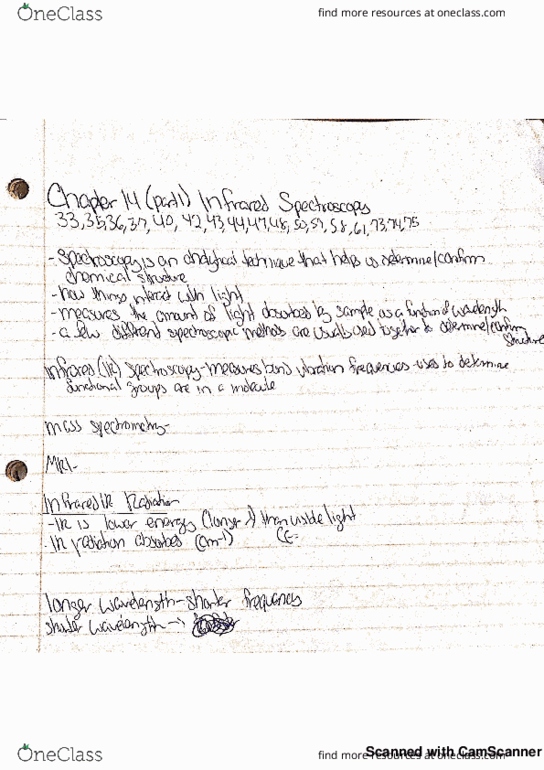 OneClass
find more resources at oneclass.com
Chapter 14 (part1) Infrared Spectroscopy
33,35,36,37,40, 42,43,44,47,48,50,57,58,61,73,74,75
- Spectroscopy is an analytical technique that helps us determine/confirm
chemical structure
- how things interact with light
- measures the amount of light absorbed by sample as a function of wavelength
- a few different spectroscopic methods are usually used together to determine/confirm
structure
Infrared (IR) Spectroscopy - measures bond vibration frequencies - used to determine
functional groups are in a molecule
mass spectrometry-
MRI-
Infrared IR Radiation
- IR is lower energy (longer λ) than visible light
- IR radiation absorbes (cm-1) CE=
longer wavelength - shorter frequency
shorter wavelength -
OneClass
find more resources at oneclass.com
Scanned with CamScanner